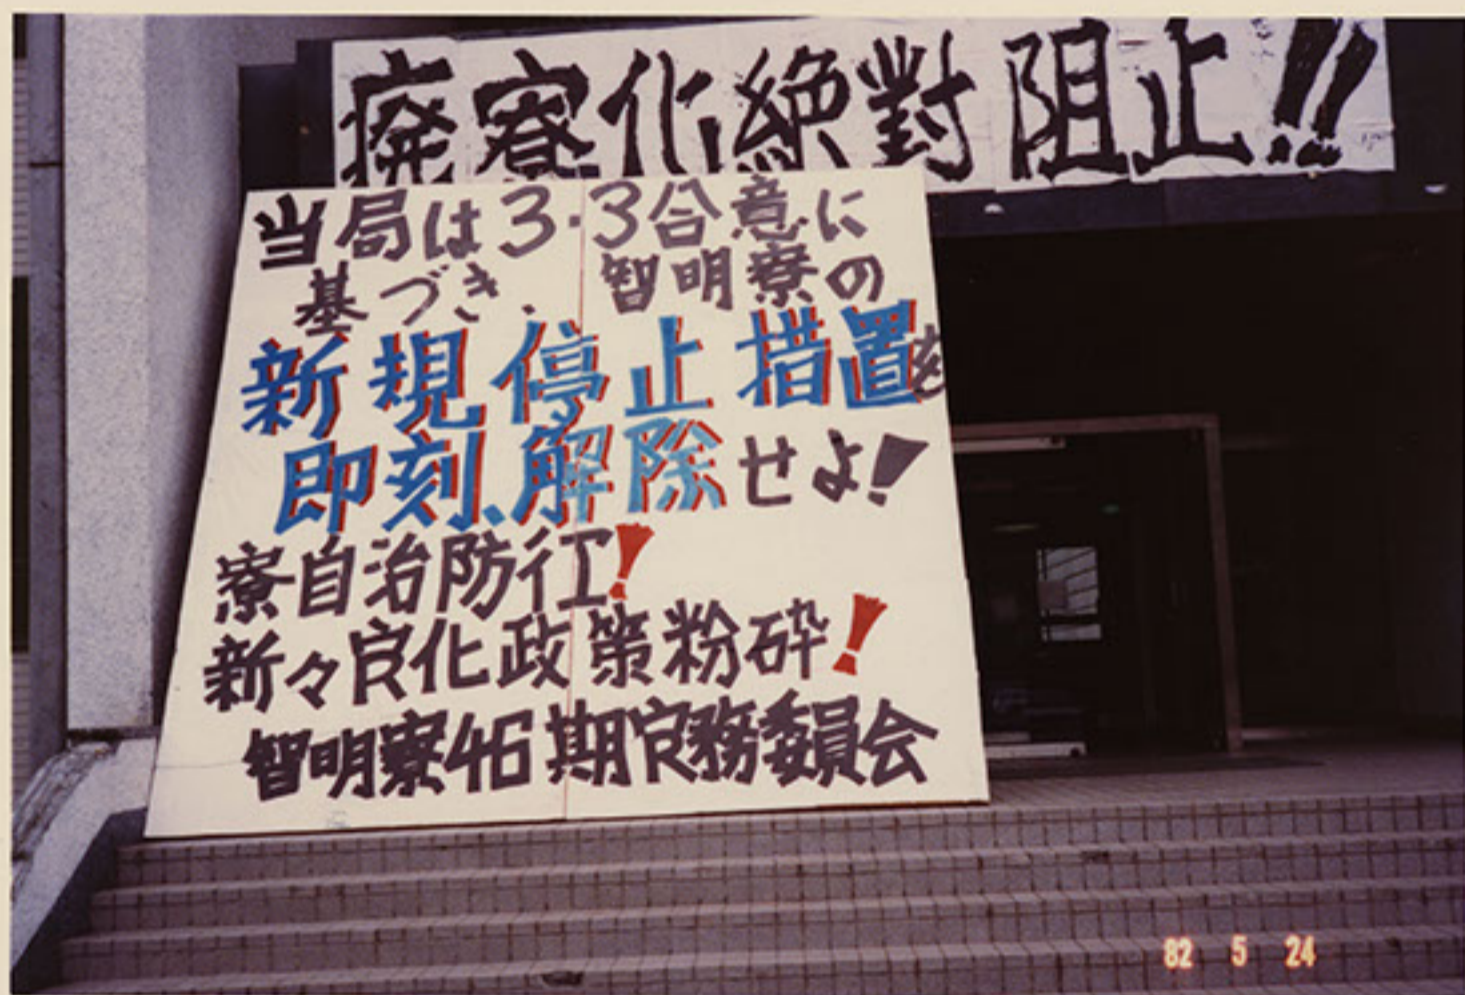 廃寮化絶對阻止!!
当局は3・3合意に
基づき、智明寮の
新規停止措置を
即刻、解除せよ!
寮自治防衛!
新々寮化政策粉砕!
智明寮46期寮務委員会
82 5 24